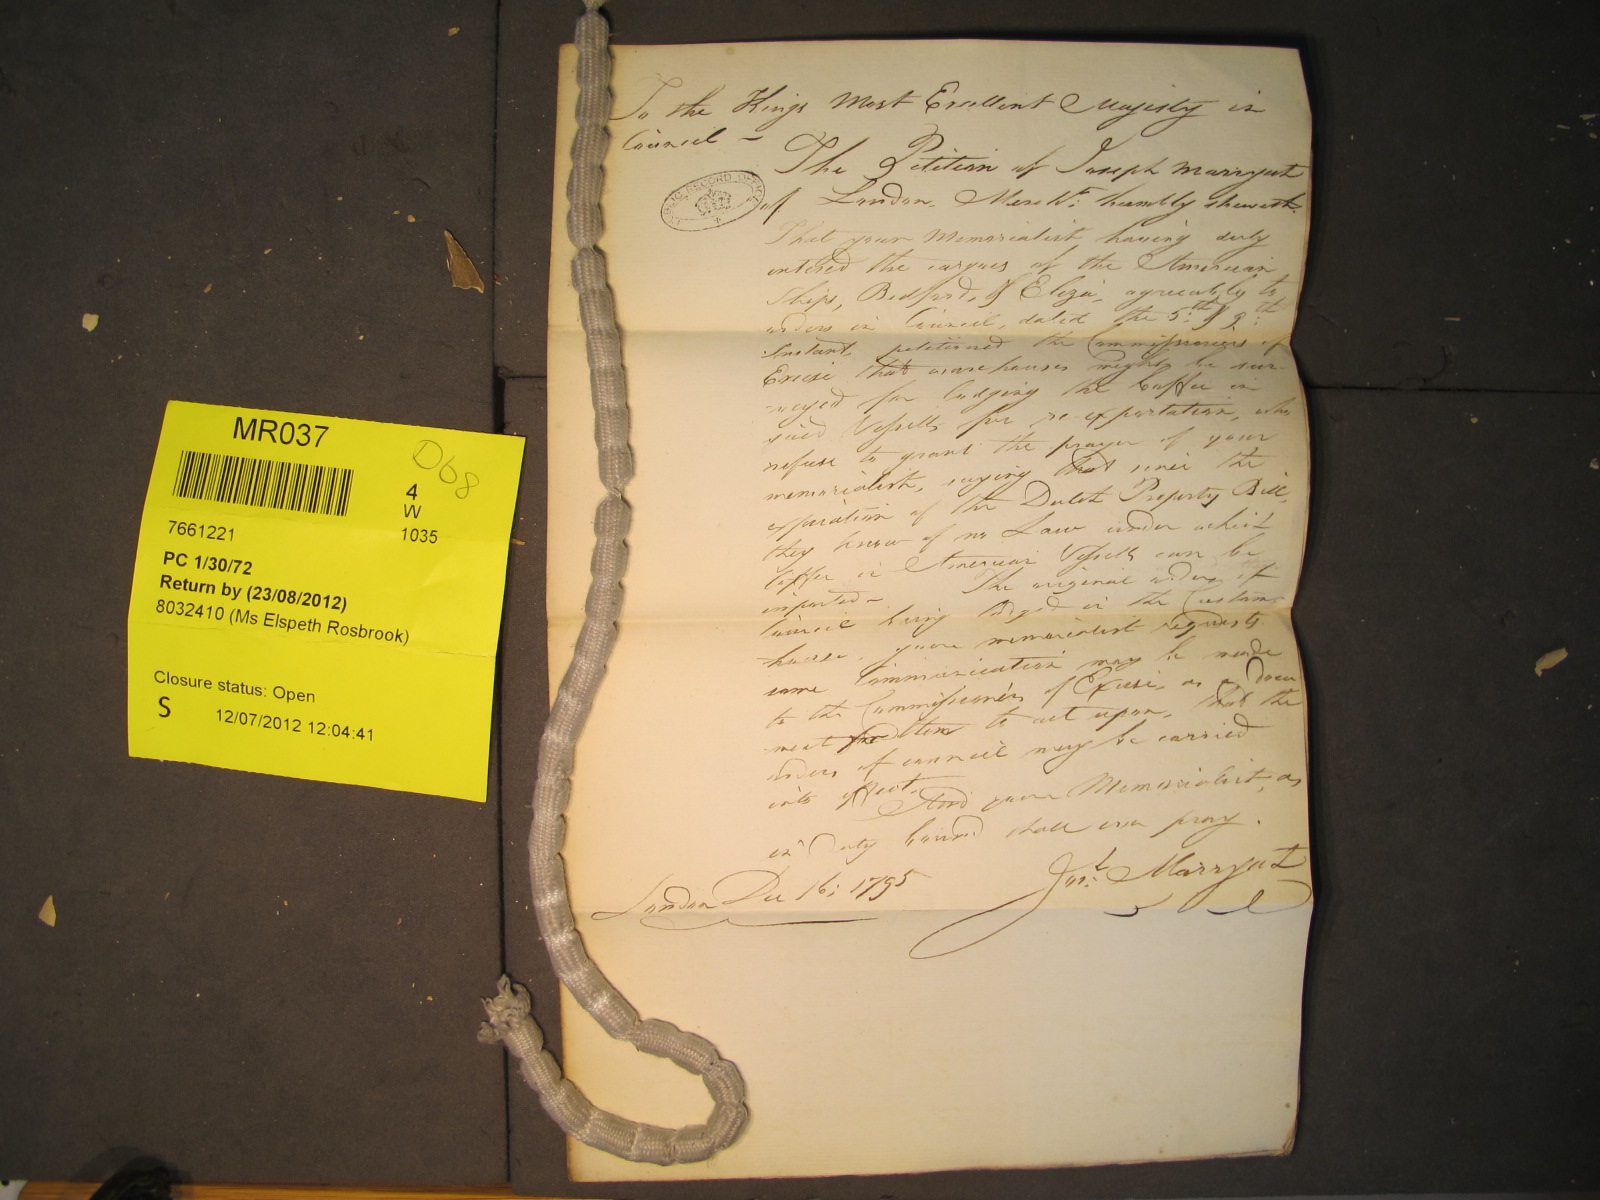 MR037
D68
4
W
7661221
1035
PC 1/30/72
Return by (23/08/2012)
8032410 (Ms Elspeth Rosbrook)
Closure status: Open
S
12/07/2012 12:04:41
To the Kings Most Excellent Majesty in
Council –
PUBLIC RECORD OFFICE
The Petition of Joseph Marryat
of London, Mercht: humbly sheweth.
That your Memorialist, having duly
entered the cargoes of the American
Ships, Bedford, & Eliza, agreeably to
orders in Council, dated the 5th: & 9th:
Instant, petitioned the Commissioners of
Excise that warehouses might be sur-
-veyed for lodging the Coffee in
said Vessells for re-exportation, who
refuse to grant the prayer of your
memorialist, saying that since the
expiration of the Dutch Property Bill,
they know of no Law under which
Coffee in American Vessells can be
imported – The original orders of
Council being lodged in the Customs
house, your memorialist requests
some Communication may be made
to the Commissioners of Excise, as a Docu
ment for them to act upon, that the
orders of council may be carried
into effect.
And your Memorialist, as
in Duty bound shall ever pray.
London Dec 16: 1795
Josh: Marryat